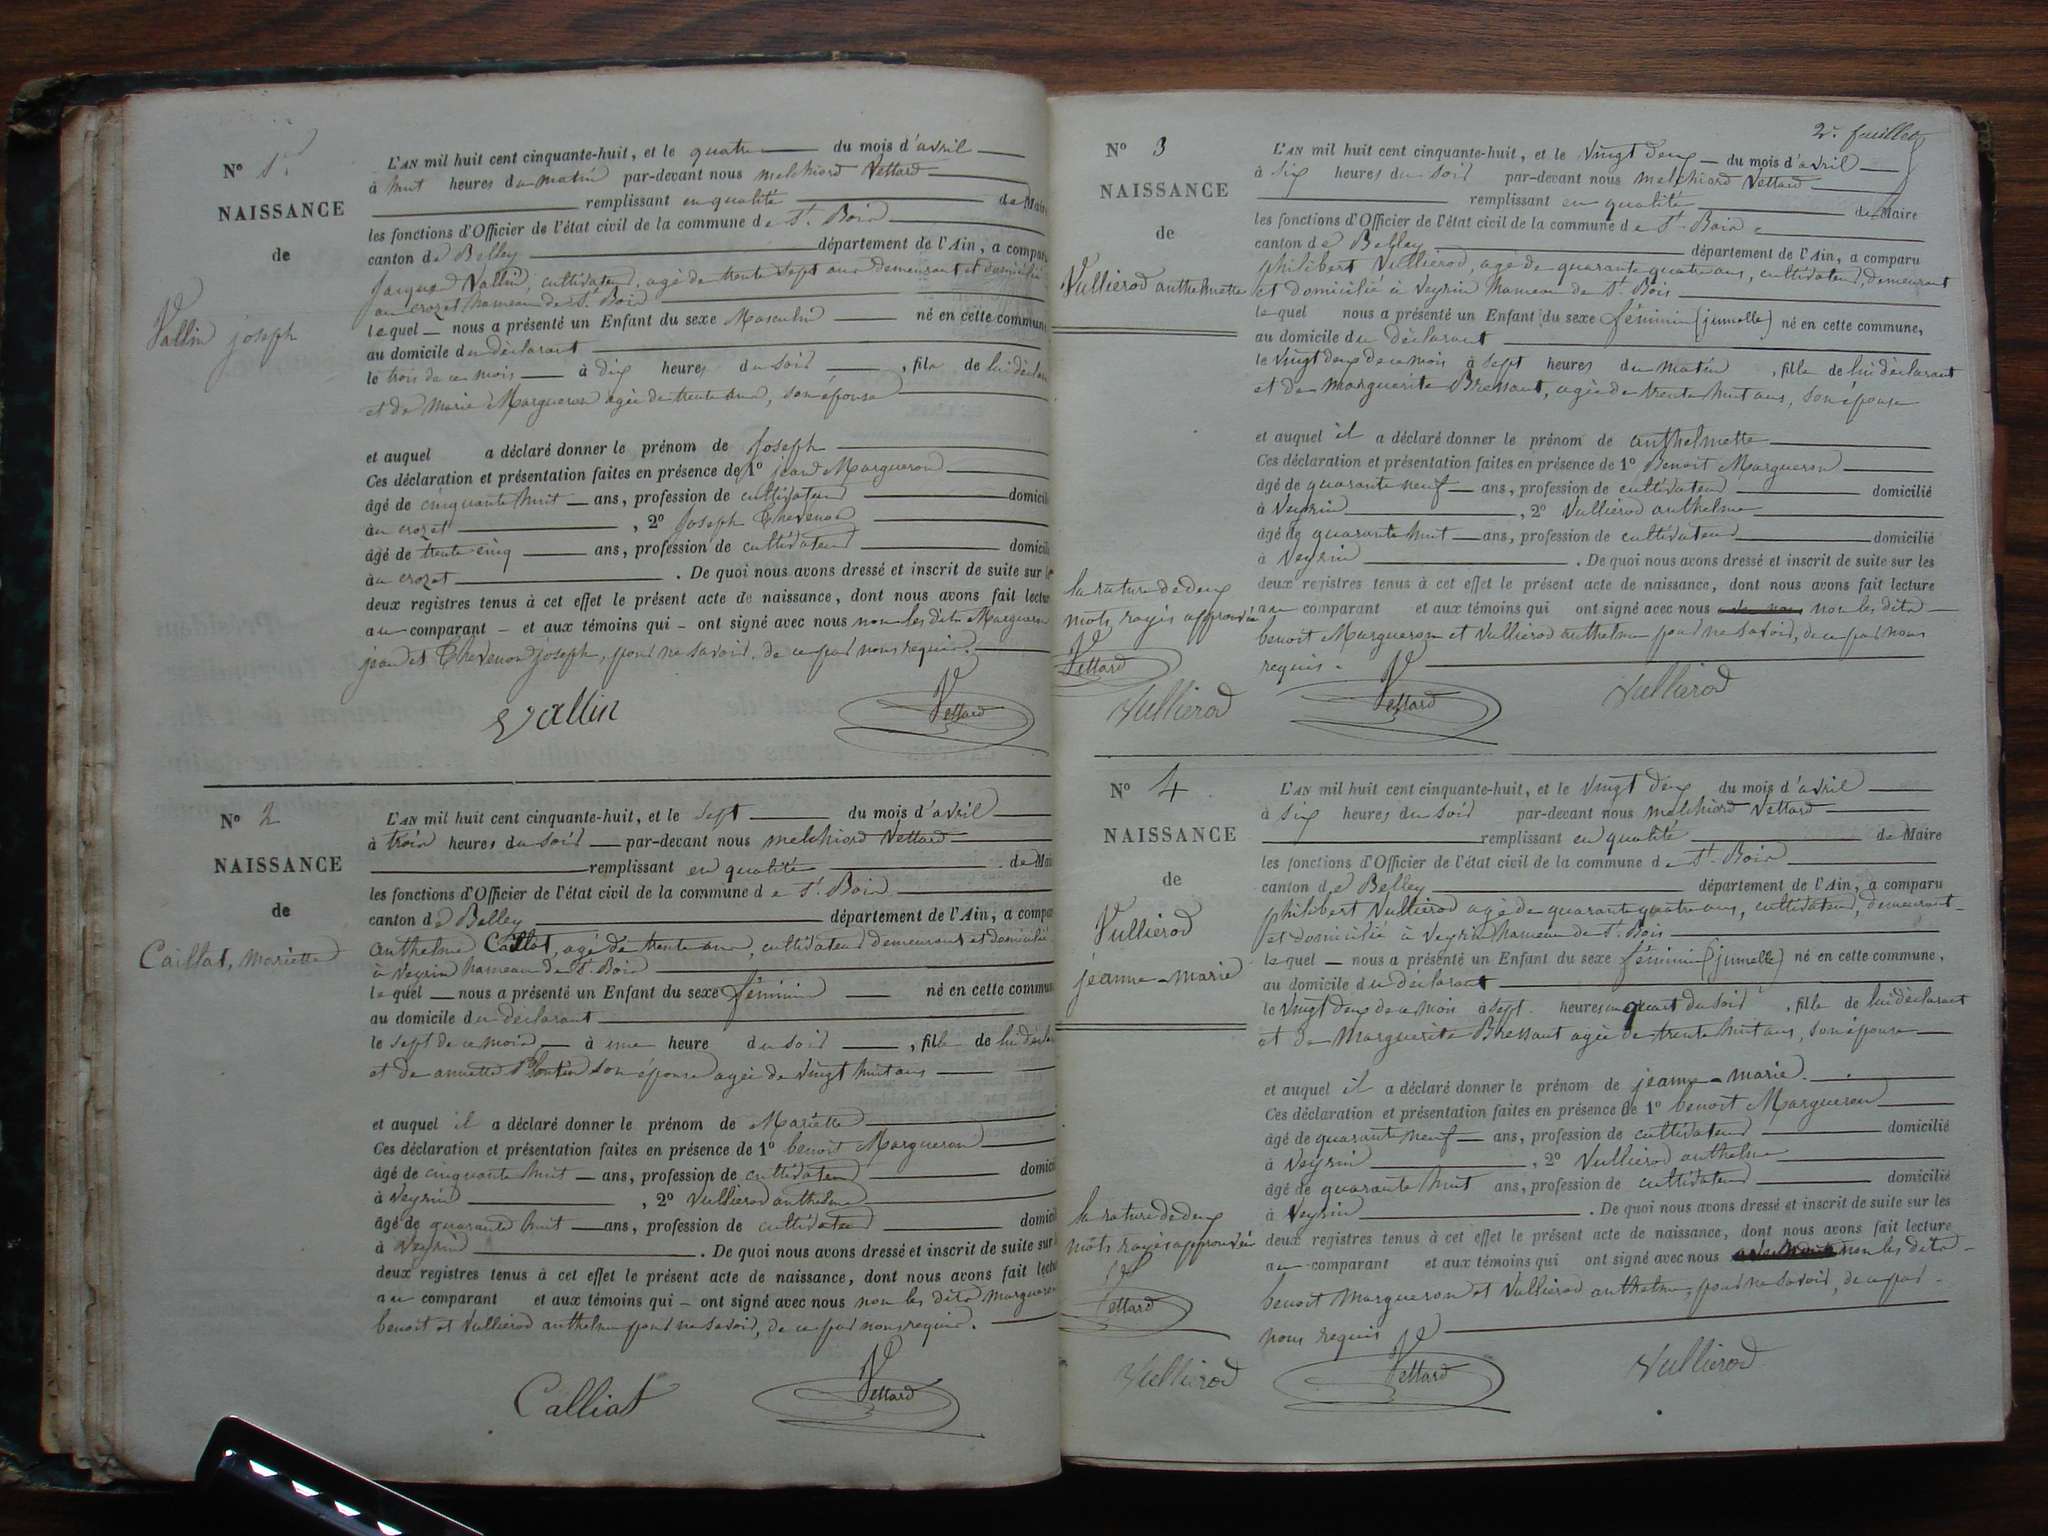 N° 1er
NAISSANCE
de
Vallin joseph
L'AN mil huit cent cinquante-huit, et le quatre du mois d'avril
à huit heures du matin par-devant nous melchiord Vettard
remplissant en qualité de Maire
les fonctions d'Officier de l'état civil de la commune de St. Bois
canton de Belley département de l'Ain, a comparu
Jacques Vallin, cultivateur, agé de trente sept ans demeurant et domicilié
au crozet hameau de St. Bois
lequel nous a présenté un Enfant du sexe Masculin né en cette commune
au domicile du déclarant
le trois de ce mois à dix heures du soir, fils de lui déclarant
et de Marie Margueron agée de trente ans, son épouse
et auquel a déclaré donner le prénom de Joseph
Ces déclaration et présentation faites en présence de 1° jean Margueron
âgé de cinquante huit ans, profession de cultivateur domicilié
au crozet, 2° Joseph Chevenon
âgé de trente cinq ans, profession de cultivateur domicilié
au crozet. De quoi nous avons dressé et inscrit de suite sur les
deux registres tenus à cet effet le présent acte de naissance, dont nous avons fait lecture
au comparant et aux témoins qui ont signé avec nous non les dits Margueron
jean et Chevenon joseph, pour ne savoir, de ce par nous requis.
Vallin Vettard
N° 2
NAISSANCE
de
Caillat, mariette
L'AN mil huit cent cinquante-huit, et le sept du mois d'avril
à trois heures du soir par-devant nous melchiord Vettard
remplissant en qualité de Maire
les fonctions d'Officier de l'état civil de la commune de St. Bois
canton de Belley département de l'Ain, a comparu
anthelme Caillat, agé de trente ans, cultivateur demeurant et domicilié
à Veyrin hameau de St. Bois
lequel nous a présenté un Enfant du sexe féminin né en cette commune
au domicile du déclarant
le sept de ce mois à une heure du soir, fille de lui déclarant
et de annette son épouse agée de vingt huit ans
et auquel il a déclaré donner le prénom de Mariette
Ces déclaration et présentation faites en présence de 1° benoit Margueron
âgé de cinquante huit ans, profession de cultivateur domicilié
à Veyrin, 2° Vullierod anthelme
âgé de quarante huit ans, profession de cultivateur domicilié
à Veyrin. De quoi nous avons dressé et inscrit de suite sur les
deux registres tenus à cet effet le présent acte de naissance, dont nous avons fait lecture
au comparant et aux témoins qui ont signé avec nous non les dits margueron
benoit et Vullierod anthelme pour ne savoir, de ce par nous requis.
Calliat Vettard
2e. feuillet
N° 3
NAISSANCE
de
Vullierod anthelmette
L'AN mil huit cent cinquante-huit, et le vingt deux du mois d'avril
à six heures du soir par-devant nous melchiord Vettard
remplissant en qualité de Maire
les fonctions d'Officier de l'état civil de la commune de St. Bois
canton de Belley département de l'Ain, a comparu
philibert Vullierod, agé de quarante quatre ans, cultivateur, demeurant
et domicilié à Veyrin hameau de St. Bois
lequel nous a présenté un Enfant du sexe féminin (jumelle) né en cette commune,
au domicile du déclarant
le vingt deux de ce mois à sept heures du matin, fille de lui déclarant
et de marguerite Bressant, agée de trente huit ans, son épouse
et auquel il a déclaré donner le prénom de anthelmette
Ces déclaration et présentation faites en présence de 1° Benoit Margueron
âgé de quarante neuf ans, profession de cultivateur domicilié
à Veyrin, 2° Vullierod anthelme
âgé de quarante huit ans, profession de cultivateur domicilié
à Veyrin. De quoi nous avons dressé et inscrit de suite sur les
deux registres tenus à cet effet le présent acte de naissance, dont nous avons fait lecture
au comparant et aux témoins qui ont signé avec nous non les dits
benoit Margueron et Vullierod anthelme pour ne savoir, de ce par nous
requis.
la rature de deux
mots rayés approuvée
Vettard
Vullierod Vettard Vullierod
N° 4
NAISSANCE
de
Vullierod
jeanne-marie
L'AN mil huit cent cinquante-huit, et le vingt deux du mois d'avril
à six heures du soir par-devant nous melchiord Vettard
remplissant en qualité de Maire
les fonctions d'Officier de l'état civil de la commune de St. Bois
canton de Belley département de l'Ain, a comparu
philibert Vullierod agé de quarante quatre ans, cultivateur, demeurant
et domicilié à Veyrin hameau de St. Bois
lequel nous a présenté un Enfant du sexe féminin (jumelle) né en cette commune,
au domicile du déclarant
le vingt deux de ce mois à sept heures un quart du soir, fille de lui déclarant
et de Marguerite Bressant agée de trente huit ans, son épouse
et auquel il a déclaré donner le prénom de jeanne-marie.
Ces déclaration et présentation faites en présence de 1° benoit Margueron
âgé de quarante neuf ans, profession de cultivateur domicilié
à Veyrin, 2° Vullierod anthelme
âgé de quarante huit ans, profession de cultivateur domicilié
à Veyrin. De quoi nous avons dressé et inscrit de suite sur les
deux registres tenus à cet effet le présent acte de naissance, dont nous avons fait lecture
au comparant et aux témoins qui ont signé avec nous non les dits
benoit Margueron et Vullierod anthelme, pour ne savoir, de ce par
nous requis
la rature de deux
mots rayés approuvée
Vettard
Vullierod Vettard Vullierod